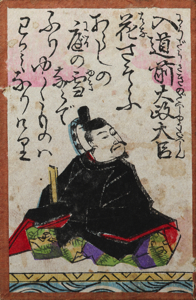 入道前太政大臣
花さそふ
あらしの
庭の雪
ならで
ふりゆくものは
わがみなりけり